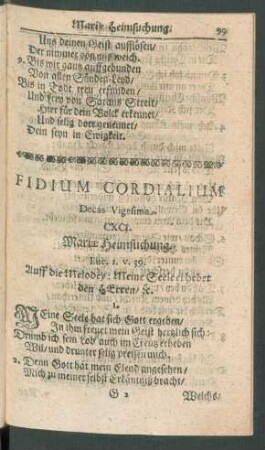 Mariæ Heimsuchung. 99
Uns deinen Geist aufflösen/
Der nimmer von uns weich.
9. Bis wir gantz auffgebunden
Von allen Sünden-Leyd/
Bis in Todt treu erfunden/
Und frey von Satans Streit/
Hier für dein Volck erkennet/
Und selig dort genennet/
Dein seyn in Ewigkeit.
FIDIUM CORDIALIUM
Decas Vigesima.
CXCI.
Mariæ Heimsuchung.
Luc. 1. v. 39.
Auff die Melodey: Meine Seele erhebet
den HErren/ &c.
1.
MEine Seele hat sich Gott ergeben/
In ihm freuet mein Geist hertzlich sich:
Drümb ich sein Lob auch im Creutz erheben
Wil/ und drunter selig preisen mich.
2. Denn Gott hat mein Elend angesehen/
Mich zu meiner selbst Erkäntniß bracht/
G 2 Welchs